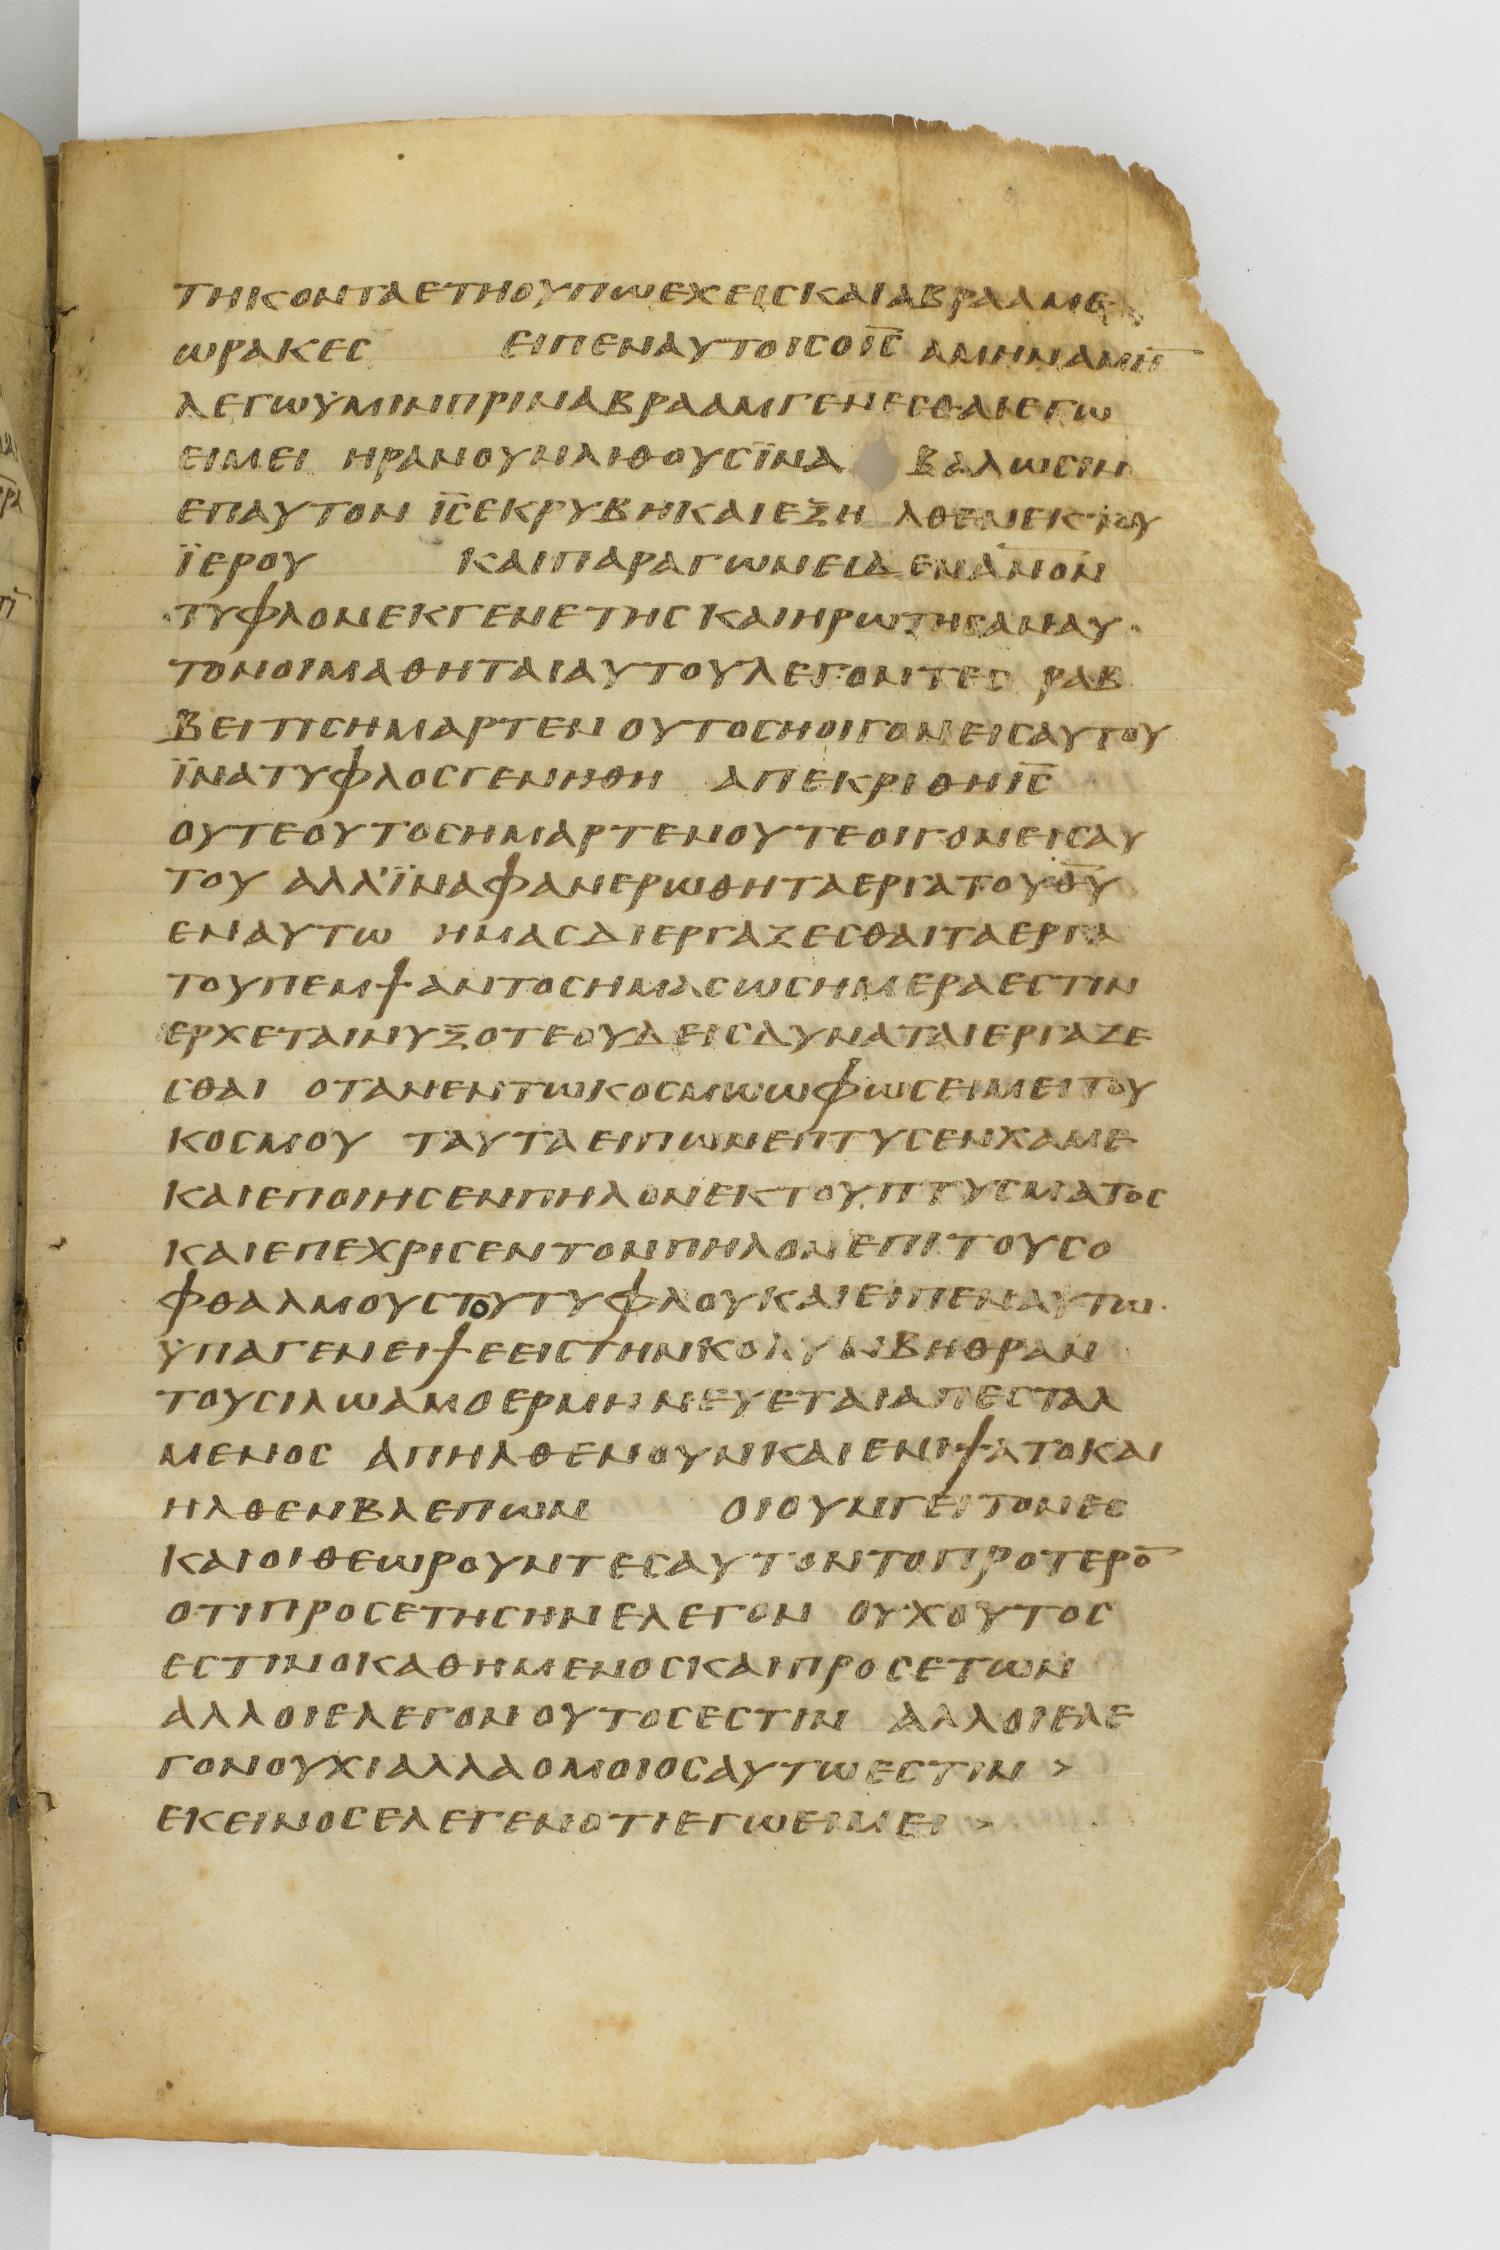 ΤΗΚΟΝΤΑΕΤΗΟΥΠΩΕΧΕΙΣΚΑΙΑΒΡΑΑΜΕ
ΩΡΑΚΕΣ ΕΙΠΕΝΑΥΤΟΙΣΟΙ̅Σ̅ ΑΜΗΝΑΜΗ̅
ΛΕΓΩΫΜΙΝΠΡΙΝΑΒΡΑΑΜΓΕΝΕΣΘΑΙΕΓΩ
ΕΙΜΕΙ ΗΡΑΝΟΥΝΛΙΘΟΥΣΪΝΑ ΒΑΛΩΣΙΝ
ΕΠΑΥΤΟΝ Ι̅Σ̅ΕΚΡΥΒΗΚΑΙΕΞΗ ΛΘΕΝΕΚΤΟΥ
ΪΕΡΟΥ ΚΑΙΠΑΡΑΓΩΝΕΙΔΕΝΑ̅Ν̅Ο̅Ν̅
ΤΥΦΛΟΝΕΚΓΕΝΕΤΗΣΚΑΙΗΡΩΤΗΣΑΝΑΥ
ΤΟΝΟΙΜΑΘΗΤΑΙΑΥΤΟΥΛΕΓΟΝΤΕΣ ΡΑΒ
ΒΕΙΤΙΣΗΜΑΡΤΕΝ ΟΥΤΟΣΗΟΙΓΟΝΕΙΣΑΥΤΟΥ
ΪΝΑΤΥΦΛΟΣΓΕΝΗΘΗ ΑΠΕΚΡΙΘΗΙ̅Σ̅
ΟΥΤΕΟΥΤΟΣΗΜΑΡΤΕΝΟΥΤΕΟΙΓΟΝΕΙΣΑΥ
ΤΟΥ ΑΛΛ'ΪΝΑΦΑΝΕΡΩΘΗΤΑΕΡΓΑΤΟΥΘ̅Υ̅
ΕΝΑΥΤΩ ΗΜΑΣΔΙΕΡΓΑΖΕΣΘΑΙΤΑΕΡΓΑ
ΤΟΥΠΕΜΨΑΝΤΟΣΗΜΑΣΩΣΗΜΕΡΑΕΣΤΙΝ
ΕΡΧΕΤΑΙΝΥΞΟΤΕΟΥΔΕΙΣΔΥΝΑΤΑΙΕΡΓΑΖΕ
ΣΘΑΙ ΟΤΑΝΕΝΤΩΚΟΣΜΩΩΦΩΣΕΙΜΕΙΤΟΥ
ΚΟΣΜΟΥ ΤΑΥΤΑΕΙΠΩΝΕΠΤΥΣΕΝΧΑΜΕ
ΚΑΙΕΠΟΙΗΣΕΝΠΗΛΟΝΕΚΤΟΥΠΤΥΣΜΑΤΟΣ
ΚΑΙΕΠΕΧΡΙΣΕΝΤΟΝΠΗΛΟΝΕΠΙΤΟΥΣΟ
ΦΘΑΛΜΟΥΣΤΟΥΤΥΦΛΟΥΚΑΙΕΙΠΕΝΑΥΤΩ
ΫΠΑΓΕΝΕΙΨΕΕΙΣΤΗΝΚΟΛΥΜΒΗΘΡΑΝ
ΤΟΥΣΙΛΩΑΜΟΕΡΜΗΝΕΥΕΤΑΙΑΠΕΣΤΑΛ
ΜΕΝΟΣ ΑΠΗΛΘΕΝΟΥΝΚΑΙΕΝΙΨΑΤΟΚΑΙ
ΗΛΘΕΝΒΛΕΠΩΝ ΟΙΟΥΝΓΕΙΤΟΝΕΣ
ΚΑΙΟΙΘΕΩΡΟΥΝΤΕΣΑΥΤΟΝΤΟΠΡΟΤΕΡΟ̅
ΟΤΙΠΡΟΣΕΤΗΣΗΝΕΛΕΓΟΝ ΟΥΧΟΥΤΟΣ
ΕΣΤΙΝΟΚΑΘΗΜΕΝΟΣΚΑΙΠΡΟΣΕΤΩΝ
ΑΛΛΟΙΕΛΕΓΟΝΟΥΤΟΣΕΣΤΙΝ ΑΛΛΟΙΕΛΕ
ΓΟΝΟΥΧΙΑΛΛΑΟΜΟΙΟΣΑΥΤΩΕΣΤΙΝ >
ΕΚΕΙΝΟΣΕΛΕΓΕΝΟΤΙΕΓΩΕΙΜΕΙ >